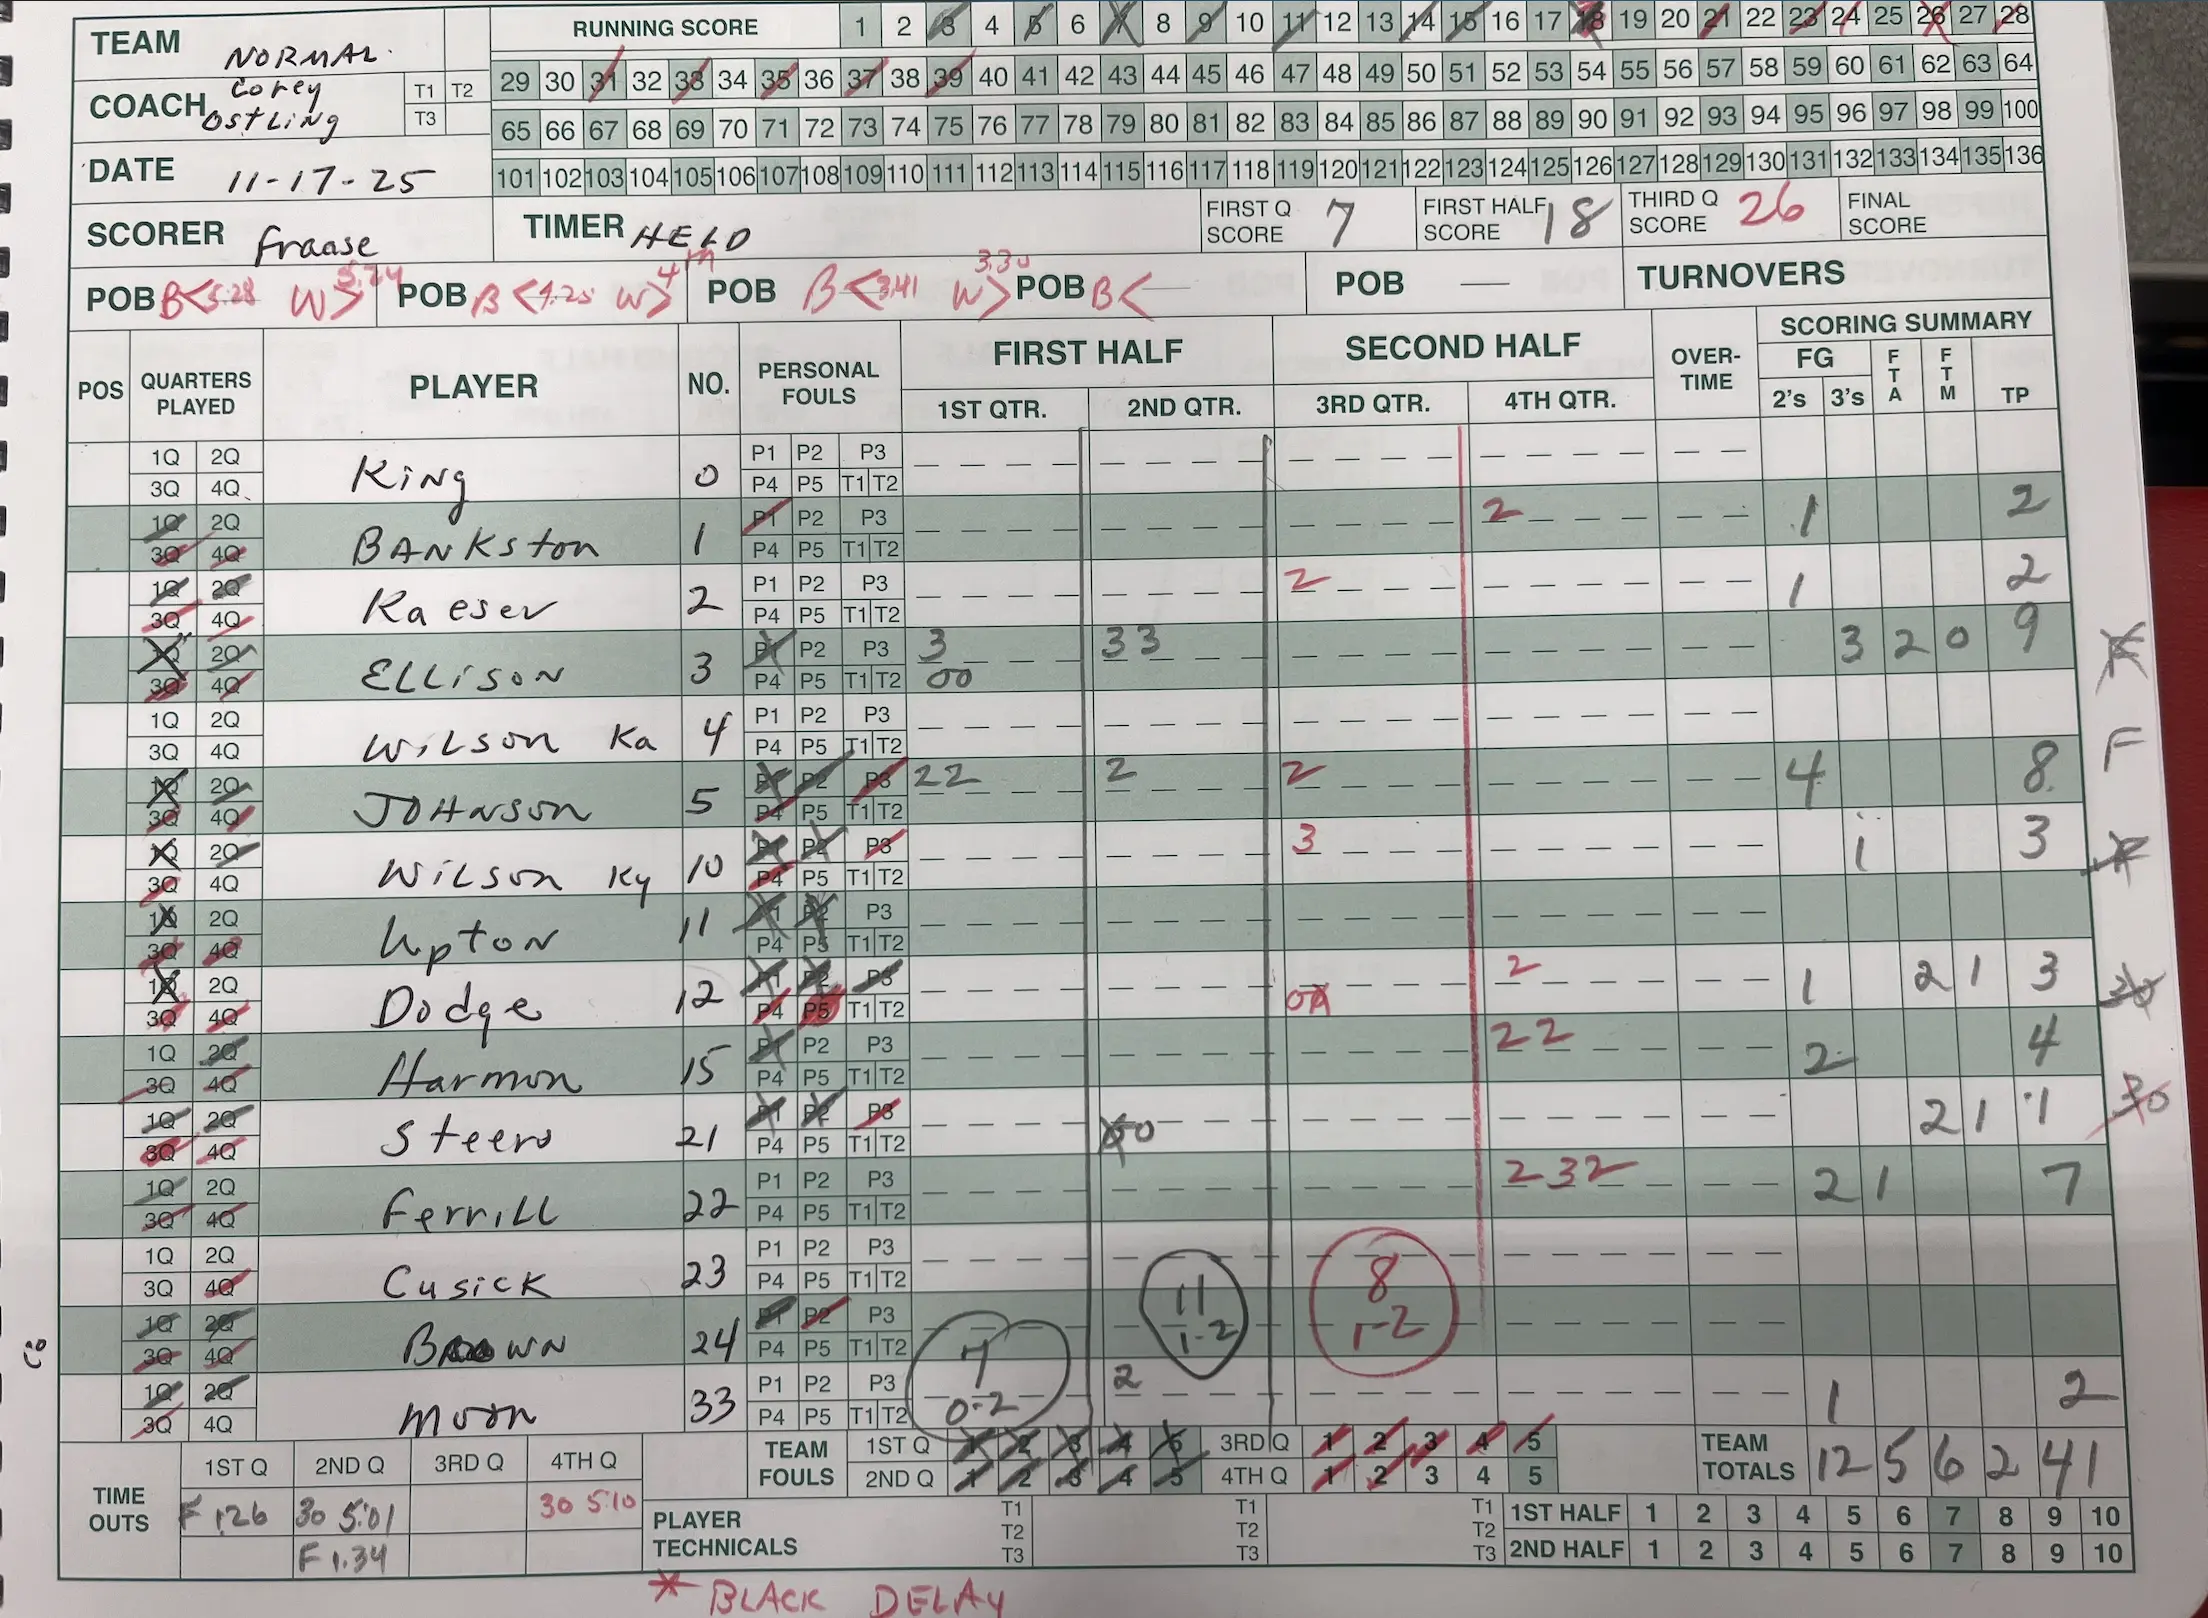 TEAM NORMAL RUNNING SCORE 1 2 3 4 5 6 7 8 9 10 11 12 13 14 15 16 17 18 19 20 21 22 23 24 25 26 27 28
29 30 31 32 33 34 35 36 37 38 39 40 41 42 43 44 45 46 47 48 49 50 51 52 53 54 55 56 57 58 59 60 61 62 63 64
COACH Corey Ostling T1 T2 T3
65 66 67 68 69 70 71 72 73 74 75 76 77 78 79 80 81 82 83 84 85 86 87 88 89 90 91 92 93 94 95 96 97 98 99 100
DATE 11-17-25
101 102 103 104 105 106 107 108 109 110 111 112 113 114 115 116 117 118 119 120 121 122 123 124 125 126 127 128 129 130 131 132 133 134 135 136
SCORER Fraase TIMER HELD FIRST Q SCORE 7 FIRST HALF SCORE 18 THIRD Q SCORE 26 FINAL SCORE
POB B< 5:28 W> 5:24 POB B< 4:25 W> 4 POB B< 3:41 W> 3:30 POB B< POB — TURNOVERS
POS QUARTERS PLAYED PLAYER NO. PERSONAL FOULS FIRST HALF SECOND HALF OVER-TIME SCORING SUMMARY
1ST QTR. 2ND QTR. 3RD QTR. 4TH QTR. FG 2's 3's FTA FTM TP
1Q 2Q 3Q 4Q King 0 P1 P2 P3 P4 P5 T1 T2
1Q 2Q 3Q 4Q BANKSton 1 P1 P2 P3 P4 P5 T1 T2 2 1 2
1Q 2Q 3Q 4Q Kaeser 2 P1 P2 P3 P4 P5 T1 T2 2 1 2
1Q 2Q 3Q 4Q ELLiSON 3 P1 P2 P3 P4 P5 T1 T2 3 00 33 3 2 0 9
1Q 2Q 3Q 4Q WiLSON Ka 4 P1 P2 P3 P4 P5 T1 T2 F
1Q 2Q 3Q 4Q JOHNSON 5 P1 P2 P3 P4 P5 T1 T2 22 2 2 4 8
1Q 2Q 3Q 4Q WiLSON Ky 10 P1 P2 P3 P4 P5 T1 T2 3 1 3
1Q 2Q 3Q 4Q Upton 11 P1 P2 P3 P4 P5 T1 T2
1Q 2Q 3Q 4Q Dodge 12 P1 P2 P3 P4 P5 T1 T2 2 1 2 1 3 30
1Q 2Q 3Q 4Q Harmon 15 P1 P2 P3 P4 P5 T1 T2 22 2 4
1Q 2Q 3Q 4Q Steers 21 P1 P2 P3 P4 P5 T1 T2 2 1 1 30
1Q 2Q 3Q 4Q Ferrill 22 P1 P2 P3 P4 P5 T1 T2 232 2 1 7
1Q 2Q 3Q 4Q Cusick 23 P1 P2 P3 P4 P5 T1 T2 11 1-2 8 1-2
1Q 2Q 3Q 4Q 24 P1 P2 P3 P4 P5 T1 T2 7 0-2
1Q 2Q 3Q 4Q Moon 33 P1 P2 P3 P4 P5 T1 T2 2 1 2
TIME OUTS 1ST Q 2ND Q 3RD Q 4TH Q TEAM FOULS 1ST Q 1 2 3 4 5 3RD Q 1 2 3 4 5 TEAM TOTALS 12 5 6 2 41
2ND Q 1 2 3 4 5 4TH Q 1 2 3 4 5
F 1:26 30 5:01 30 5:10 PLAYER TECHNICALS T1 T2 T3 T1 T2 T3 T1 T2 T3 1ST HALF 1 2 3 4 5 6 7 8 9 10
F 1:34 2ND HALF 1 2 3 4 5 6 7 8 9 10
* BLACK DELAY